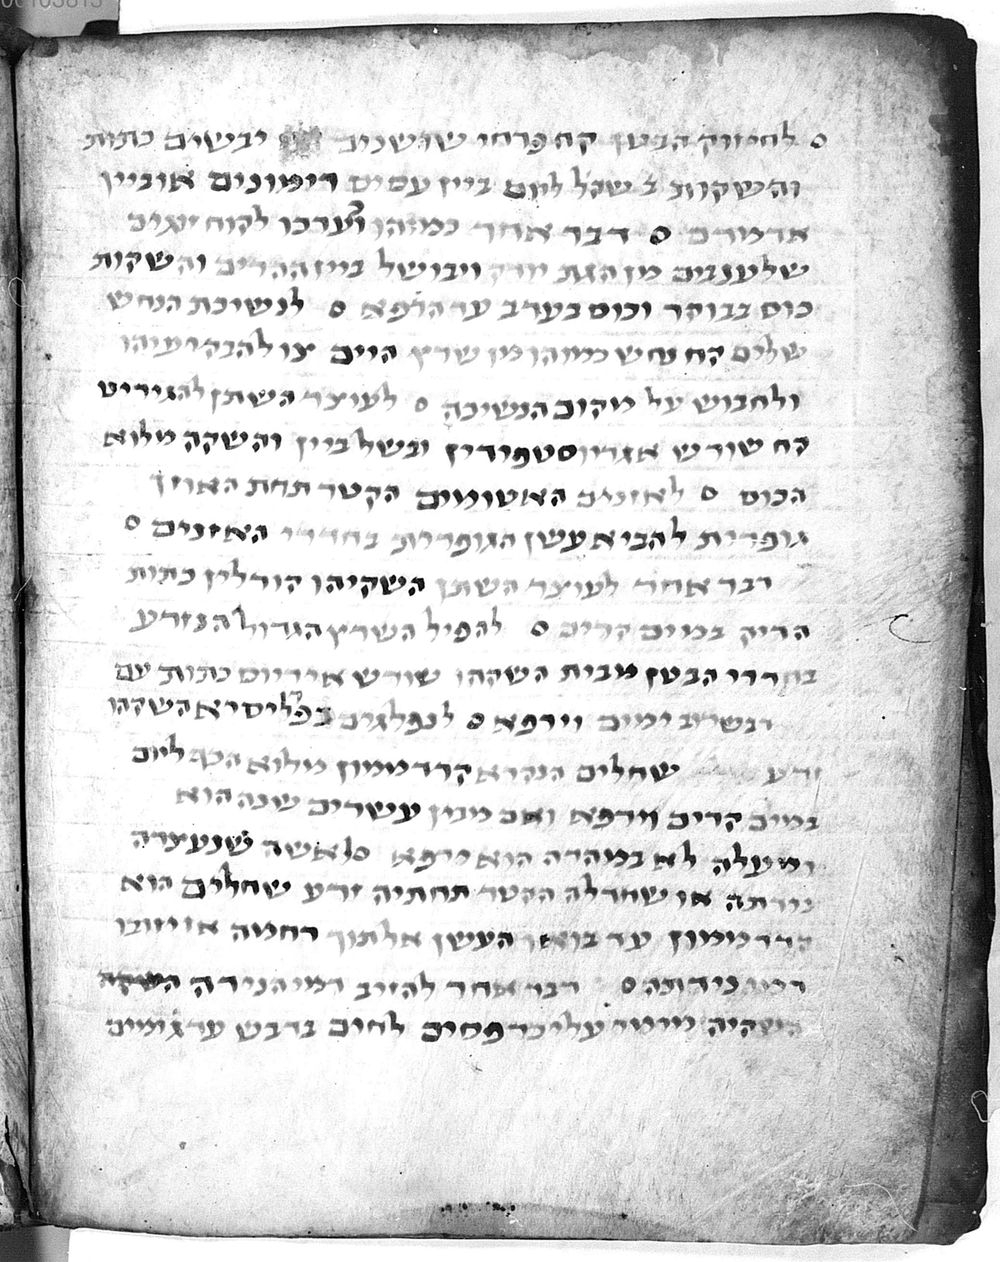 00103813
ס לחיזוק הבטן קח פרחי שושנים יבשים כתות
והשקות ב שקל ליום ביין עסיס רימונים או ביין
אדמדם ס דבר אחר כמוהו וערכו לקוח יונים
שלענבים מן הגת ויבושל ביין ההדים והשקות
כוס בבוקר וכוס בערב עד הרפא ס לנשיכת הנחש
שלים קח נחש כמוהו מן שרץ הים צו להבקיעיהו
ולחבוש על מקום הנשיכה ס לעוצר השתן להגיריט
קח שורש אנדיוסטפידין ובשל ביין והשקה מלוא
הכוס ס לאזנים האטומים הקטר תחת האוזן
גופרית להביא עשן הגופרית בחדרי האזנים ס
דבר אחר לעוצר השתן השקיהו קורלין כתות
הדיק במים קרים ס להפיל השרץ הגדול הנזרע
בחדרי הבטן מבית השקהו שורש איריוס כתות עם
דבש רוב ימים וירפא ס לנפלגים בפליסיא השקהו
זרע שחלים הנקרא קרדממון מלוא הכף ליום
במים קרים וירפא ואם מבין עשרים שנה הוא
ומעלה לא במהרה הוא מרפא ס לאשה שנעצרה
נידתה או שחדלה הקטר תחתיה זרע שחלים הוא
קרדממון עד בוא העשן אל תוך רחמה אז יזובו
דמי נידותה ס דבר אחר להזיב דמי הנידה השקה
השקיה מימי עלי כרתחים לחים בדבש עד גומים